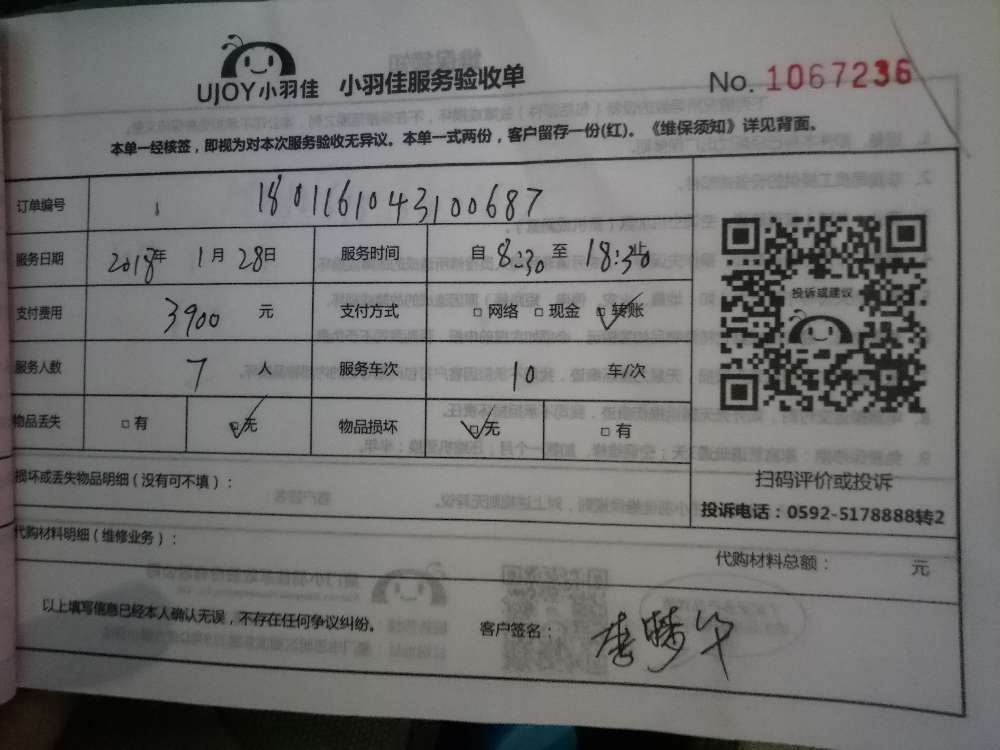 UJOY小羽佳 小羽佳服务验收单 No. 1067236
本单一经核签，即视为对本次服务验收无异议。本单一式两份，客户留存一份(红)。《维保须知》详见背面。
订单编号 1801161043100687
服务日期 2018年 1月 28日 服务时间 自 8:30 至 18:30止
支付费用 3900 元 支付方式 □ 网络 □ 现金 □ 转账
服务人数 7 人 服务车次 10 车/次
物品丢失 □ 有 □ 无 物品损坏 □ 无 □ 有
投诉或建议
扫码评价或投诉
投诉电话：0592-5178888转2
损坏或丢失物品明细（没有可不填）：
代购材料明细（维修业务）：
代购材料总额： 元
以上填写信息已经本人确认无误，不存在任何争议纠纷。
客户签名：